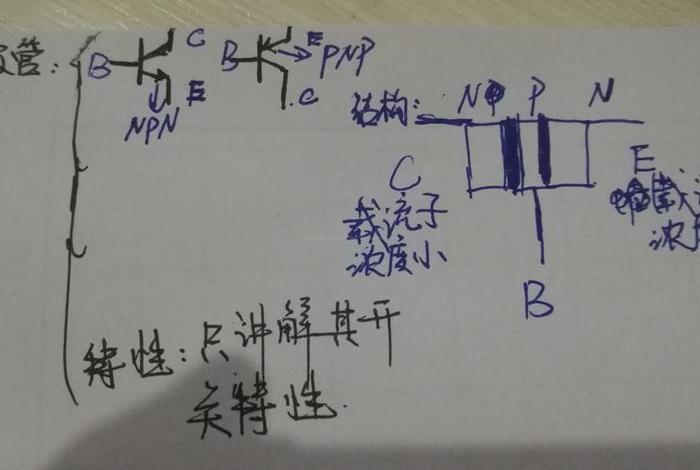 管:
B C E NPN
B E PNP C
结构: N P N
C
载流子
浓度小
E
载
浓度
B
特性:只讲解其开
关特性.